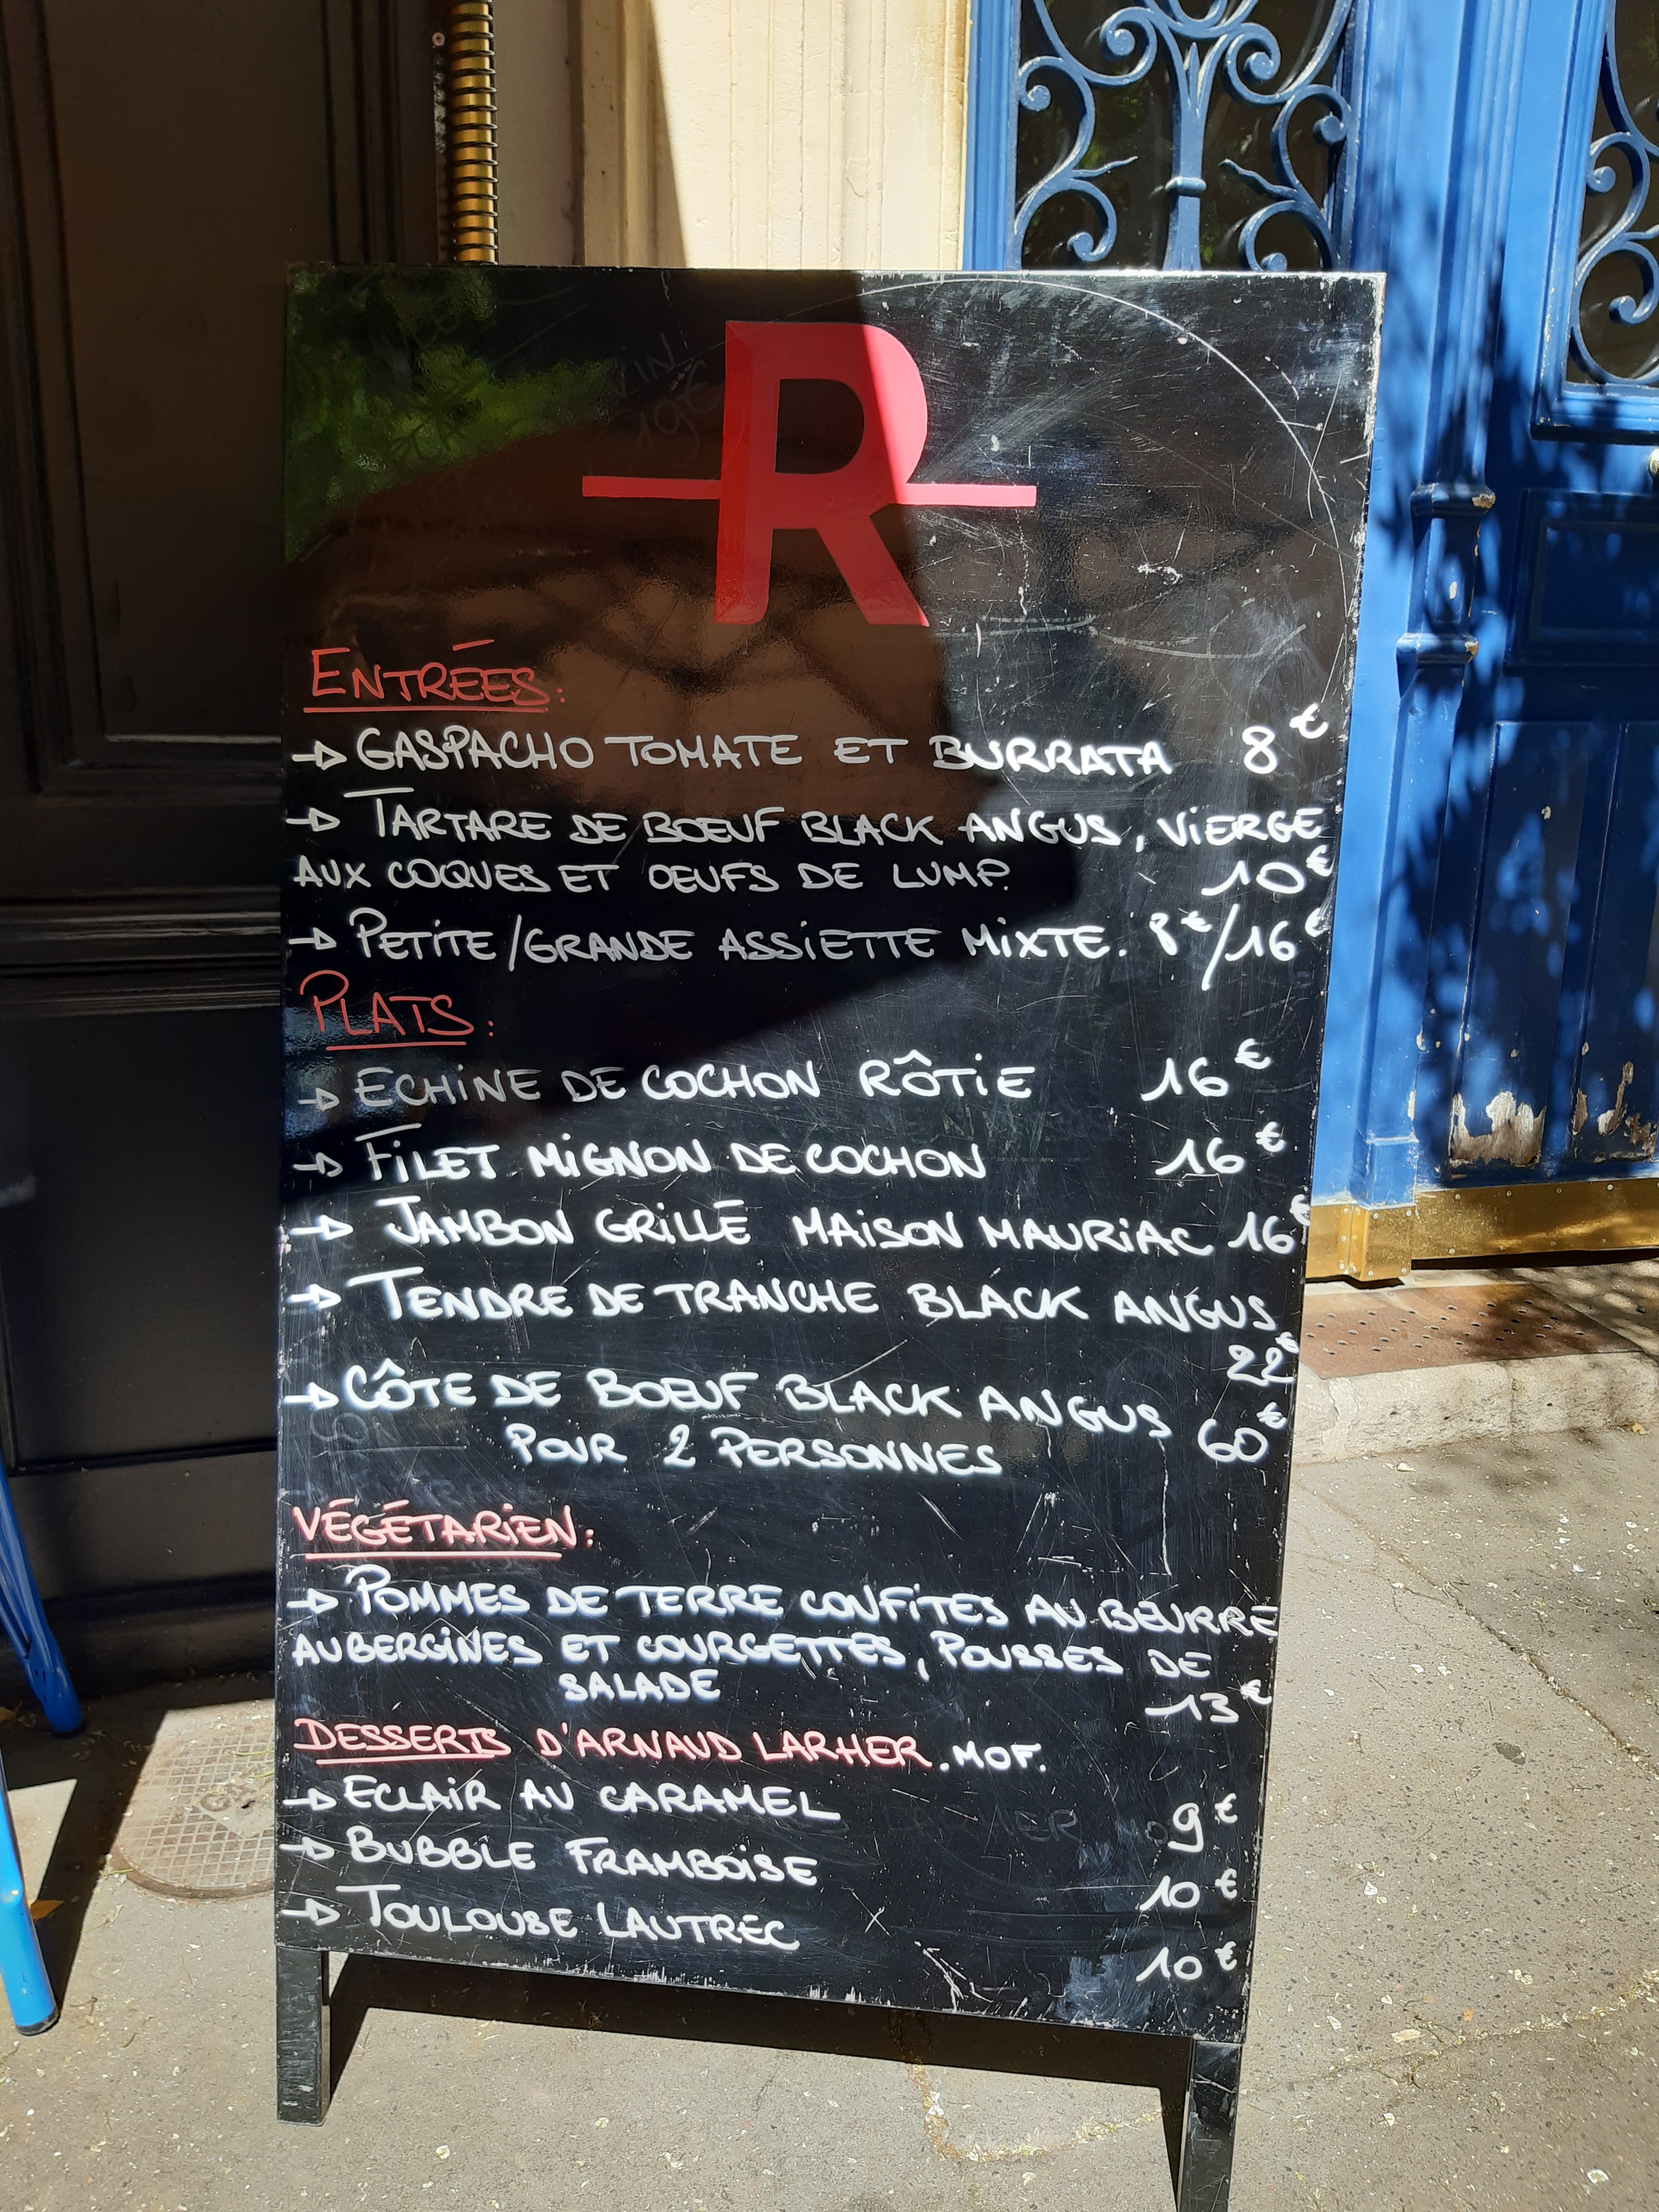 R
ENTRÉES:
→ GASPACHO TOMATE ET BURRATA 8€
→ TARTARE DE BŒUF BLACK ANGUS, VIERGE
AUX COQUES ET OEUFS DE LUMP. 10€
→ PETITE/GRANDE ASSIETTE MIXTE. 8€/16€
PLATS:
→ ECHINE DE COCHON RÔTIE 16€
→ FILET MIGNON DE COCHON 16€
→ JAMBON GRILLÉ MAISON MAURIAC 16€
→ TENDRE DE TRANCHE BLACK ANGUS
22€
→ CÔTE DE BŒUF BLACK ANGUS 60€
POUR 2 PERSONNES
VÉGÉTARIEN:
→ POMMES DE TERRE CONFITES AU BEURRE
AUBERGINES ET COURGETTES, POUSSES DE
SALADE 13€
DESSERTS D'ARNAUD LARHER. MOF.
→ ECLAIR AU CARAMEL 9€
→ BUBBLE FRAMBOISE 10€
→ TOULOUSE LAUTREC 10€